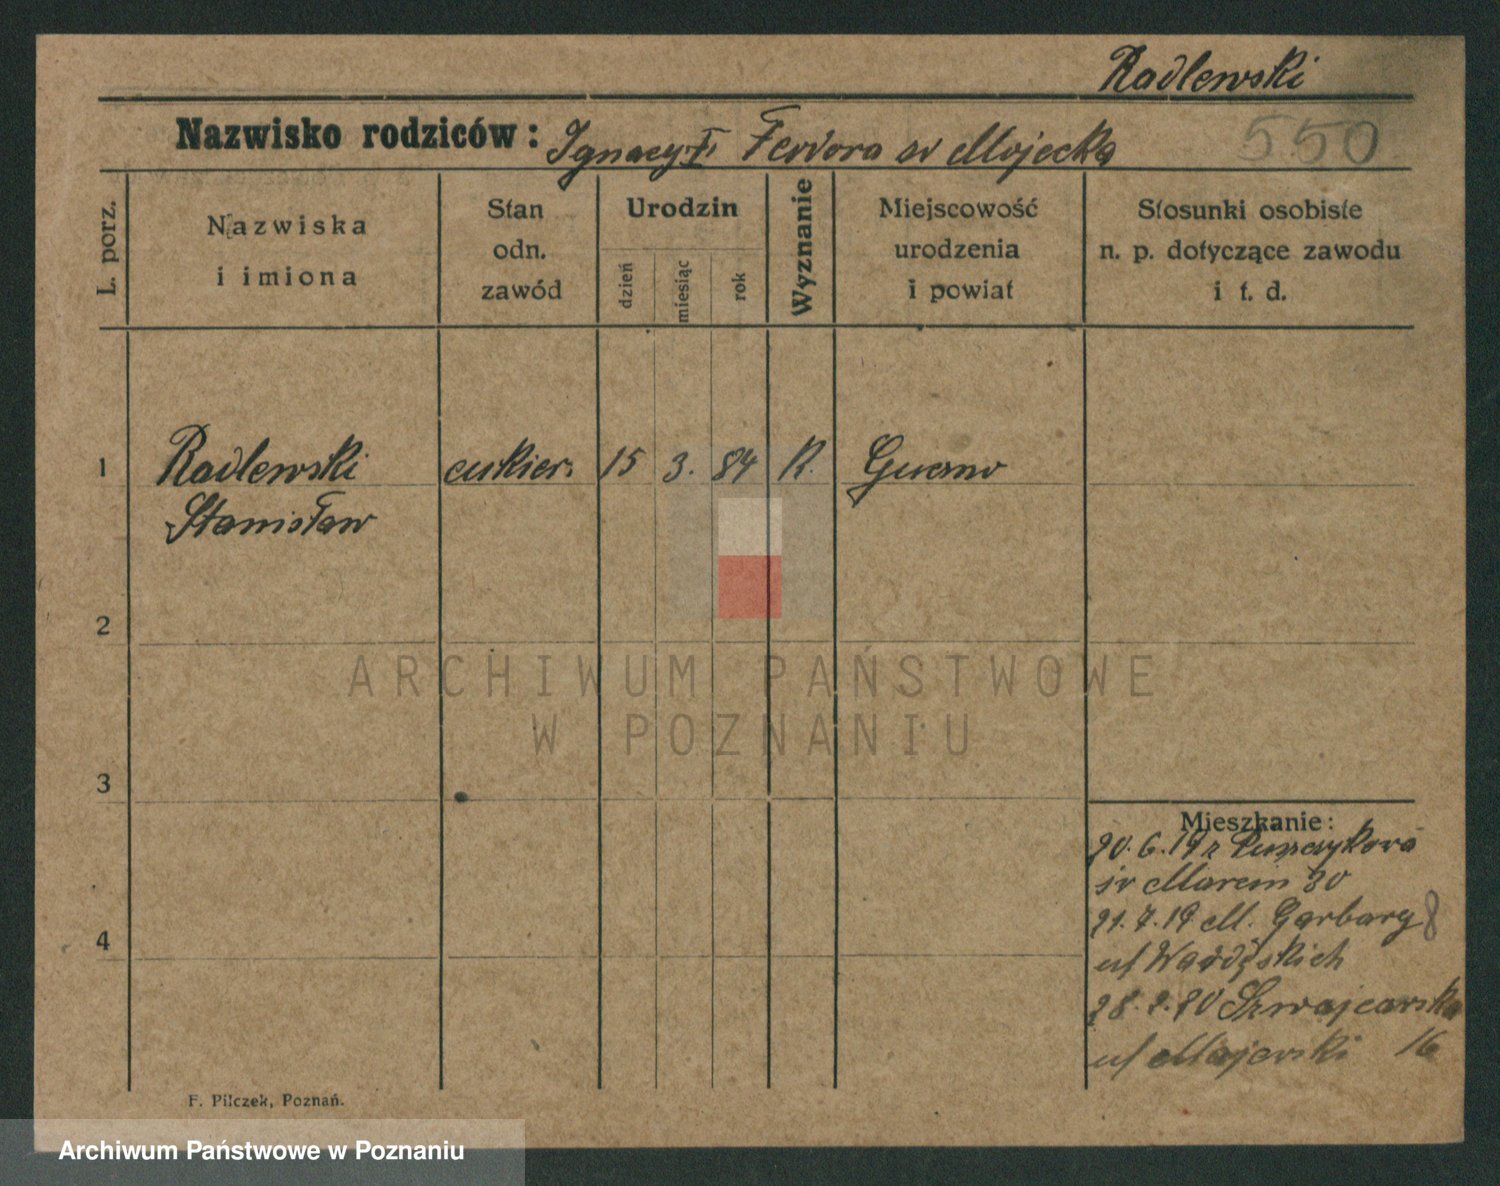 Radlewski
Nazwisko rodziców: Ignacy Feodora Mojecka
550
L. porz.
Nazwiska
i imiona
Stan
odn.
zawód
Urodzin
dzień
miesiąc
rok
Wyznanie
Miejscowość
urodzenia
i powiat
Stosunki osobiste
n. p. dotyczące zawodu
i t. d.
1
Radlewski cukier. 15 3. 84 K.
Stanisław
2
ARCHIWUM PAŃSTWOWE
W POZNANIU
3
Mieszkanie:
20.6.19 z
Marcin 30
21.7.19 M. Garbary 8
28.2.20 Szwajcarska
Majewski 16
4
F. Pilczek, Poznań.
Archiwum Państwowe w Poznaniu